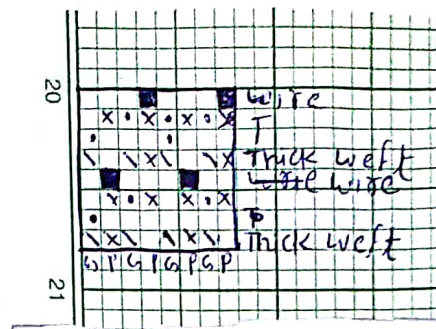 20
wire
T
Thick weft
wire
T
Thick weft
G P G P G P G P
21